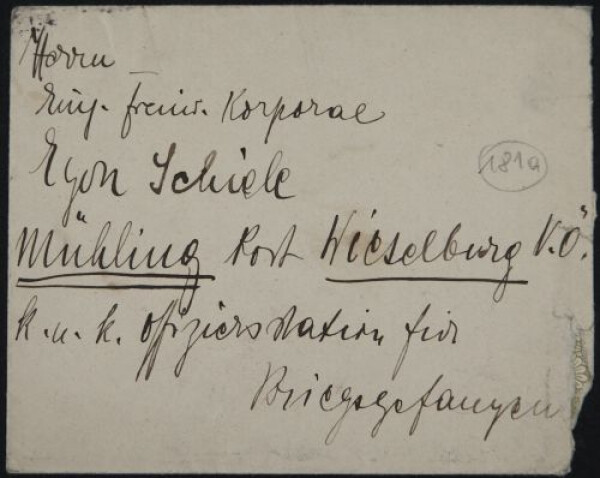 Herrn
Einj. freiw. Korporal
Egon Schiele
181a
Mühling Post Wieselburg N.Ö.
k. u. k. Offiziersstation für
Kriegsgefangen